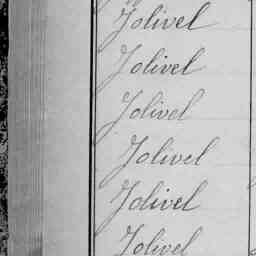 Jolivel
Jolivel
Jolivel
Jolivel
Jolivel
Jolivel